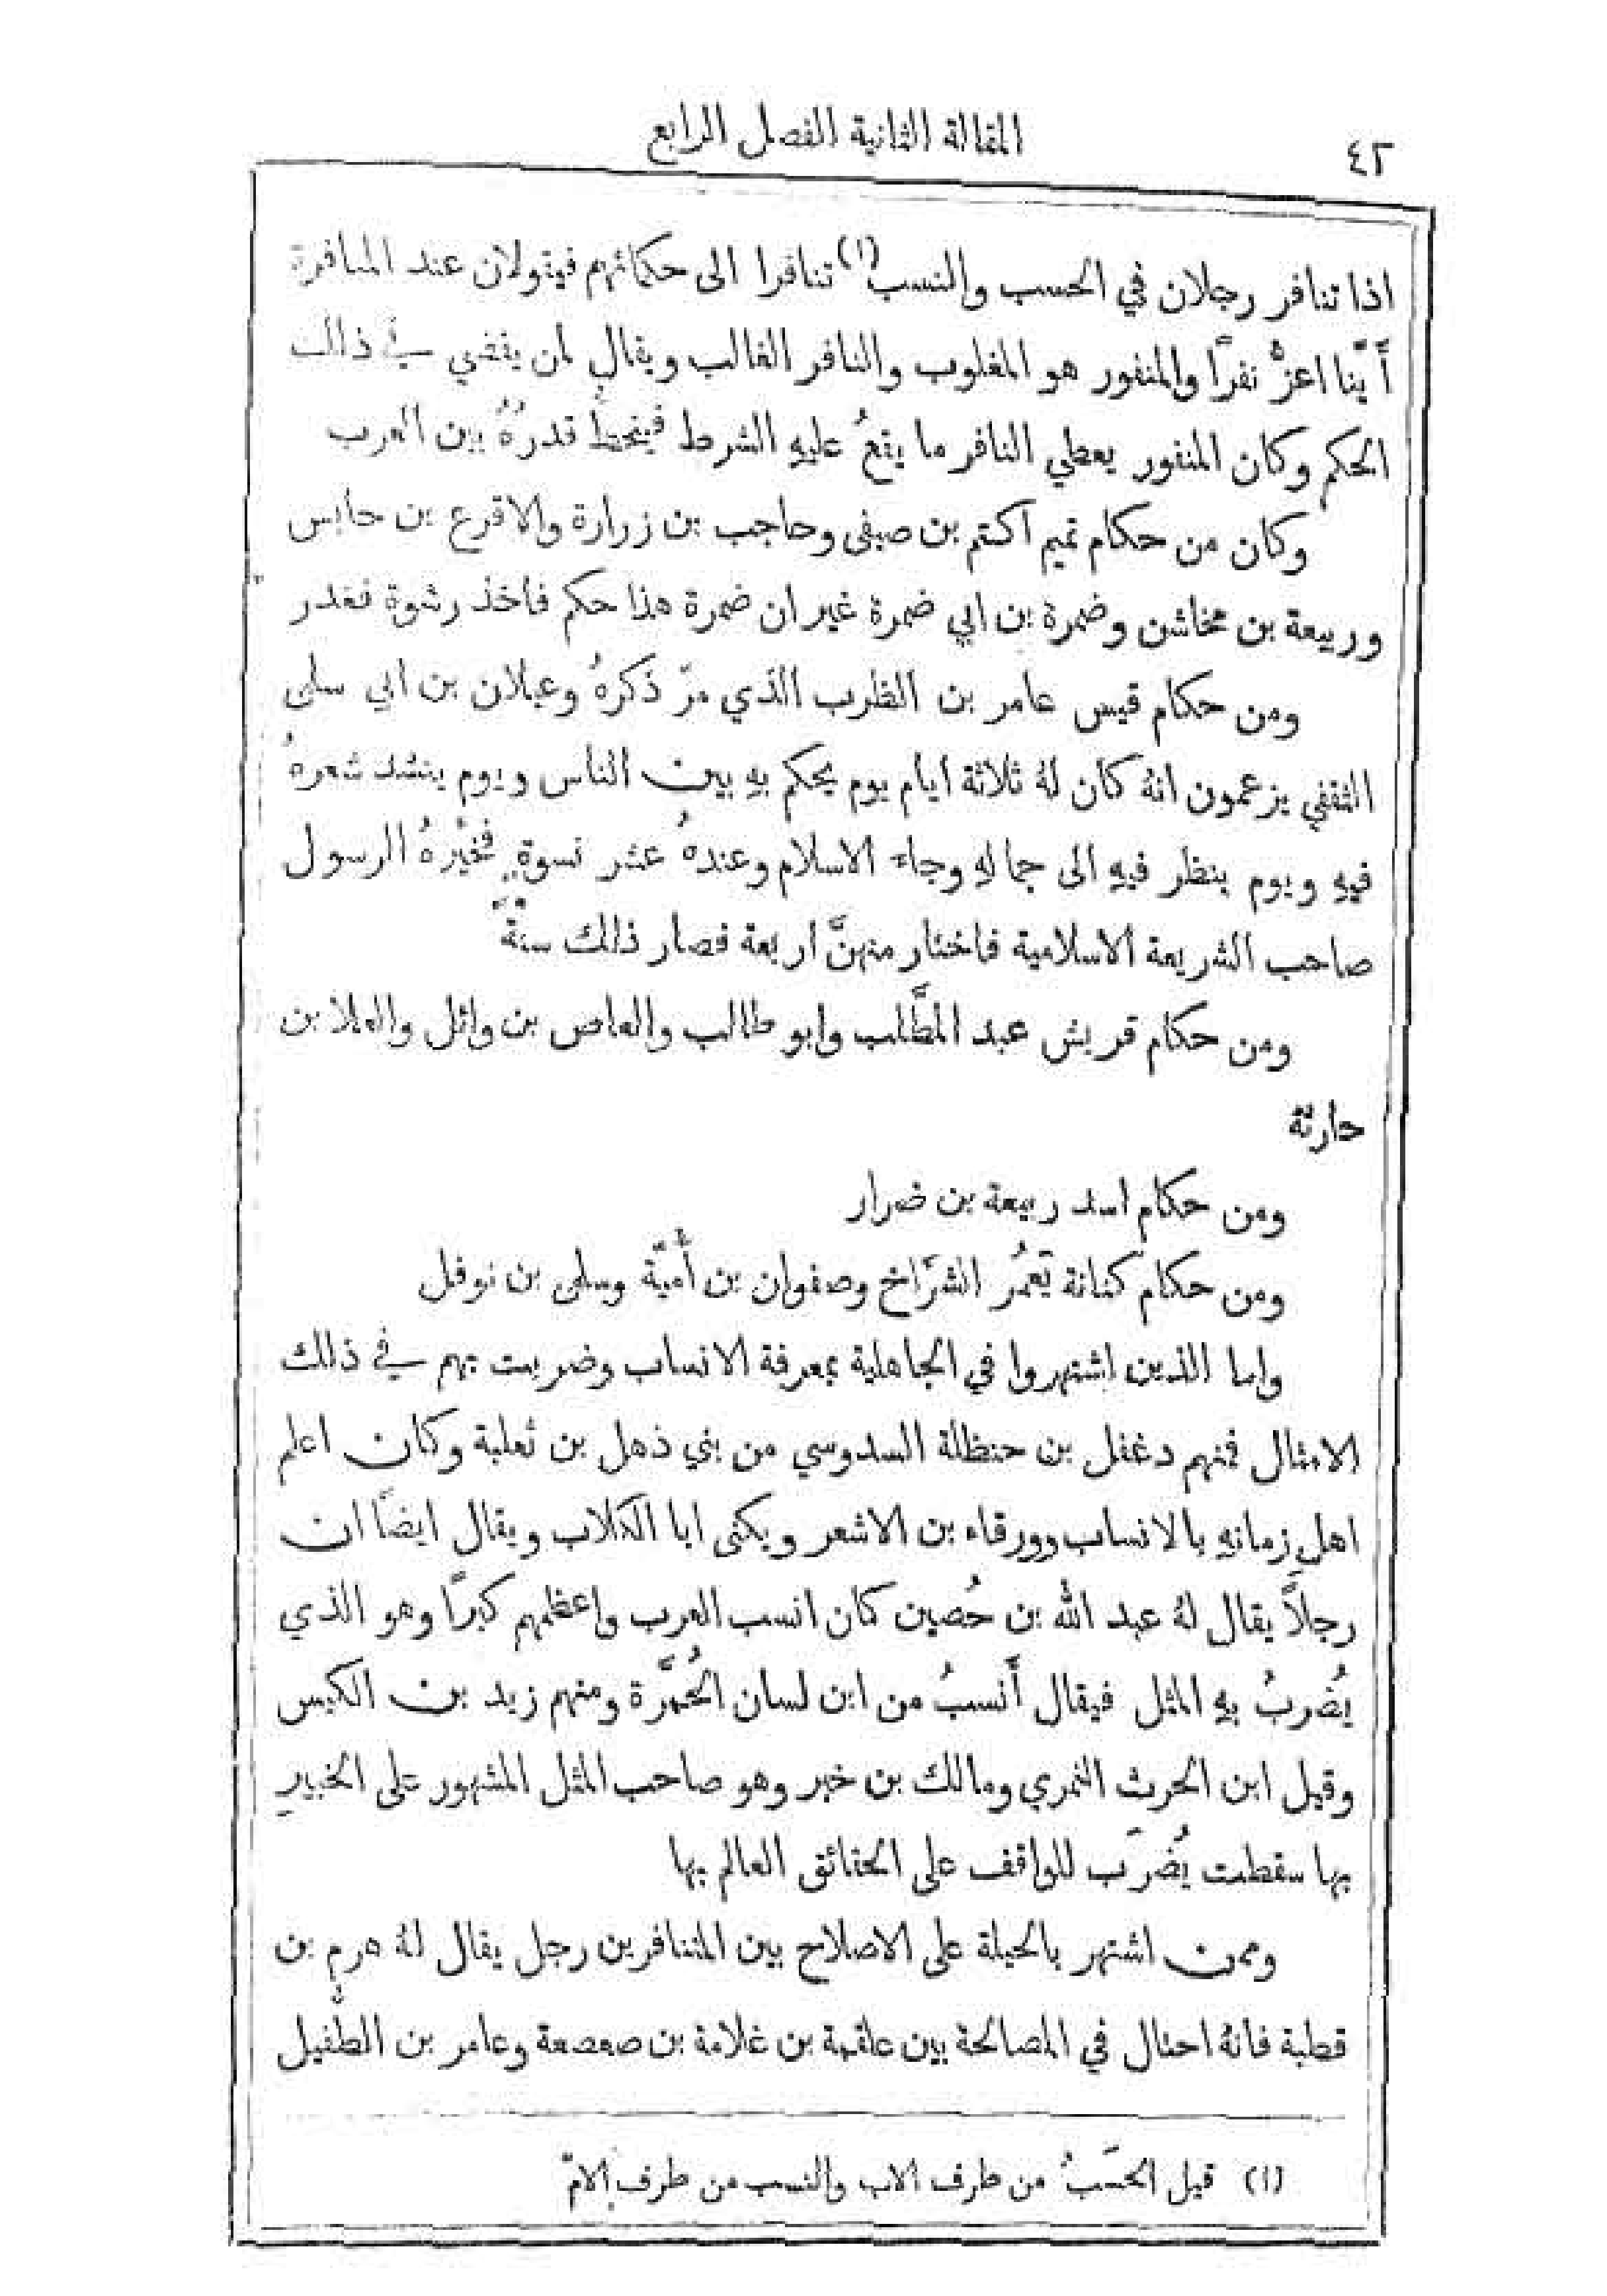 ٤٢
المقالة الثانية الفصل الرابع
اذا تنافر رجلان في الحسب والنسب(١) تنافرا الى حكمائهم فيقولان عند المنافرة
أَيُّنا اعزُّ نفرًا والمنفور هو المغلوب والنافر الغالب ويقال لمن يقضي في ذلك
الحكم وكان المنفور يعطي النافر ما يقعُ عليهِ الشرط فينحطُّ قدرُهُ بين العرب
وكان من حكام تميم اكتم بن صيفى وحاجب بن زرارة والاقرع بن حابس
وربيعة بن مخاشن وضمرة بن ابي ضمرة غير ان ضمرة هذا حكم فاخذ رشوة فغدر
ومن حكام قيس عامر بن الظرب الذي مرّ ذكرهُ وعيلان بن ابي سلمى
الثقفي يزعمون انهُ كان لهُ ثلاثة ايام يوم يحكم بهِ بين الناس ويوم ينشد شعرهُ
فيهِ ويوم ينظر فيهِ الى جمالهِ وجاء الاسلام وعندهُ عشر نسوةٍ فخيَّرهُ الرسول
صاحب الشريعة الاسلامية فاختار منهنَّ اربعة فصار ذلك سنَّةً
ومن حكام قريش عبد المطَّلب وابو طالب والعاص بن وائل والعلا بن
حارثة
ومن حكام اسد ربيعة بن ضرار
ومن حكام كنانة يَعمُر الشرَّاخ وصفوان بن أُميَّة وسلمى بن نوفل
واما الذين اشتهروا في الجاهلية بمعرفة الانساب وضربت بهم في ذلك
الامثال فمنهم دغفل بن حنظلة السدوسي من بني ذهل بن ثعلبة وكان اعلم
اهل زمانهِ بالانساب وورقاء بن الاشعر ويكنى ابا الكلاب ويقال ايضًا ان
رجلاً يقال لهُ عبد الله بن حُصين كان انسب العرب واعظمهم كبرًا وهو الذي
يُضربُ بهِ المثل فيقال أَنسبُ من ابن لسان الحُمَّرة ومنهم زيد بن الكيس
وقيل ابن الحرث النمري ومالك بن خبر وهو صاحب المثل المشهور على الخبيرِ
بها سقطت يُضرَب للواقف على الحقائق العالم بها
وممن اشتهر بالحيلة على الاصلاح بين المتنافرين رجل يقال لهُ هرم بن
قطبة فانهُ احتال في المصالحة بين علقمة بن غلامة بن صعصعة وعامر بن الطُفيل
(١) قيل الحَسَبُ من طرف الاب والنسب من طرف الامّ